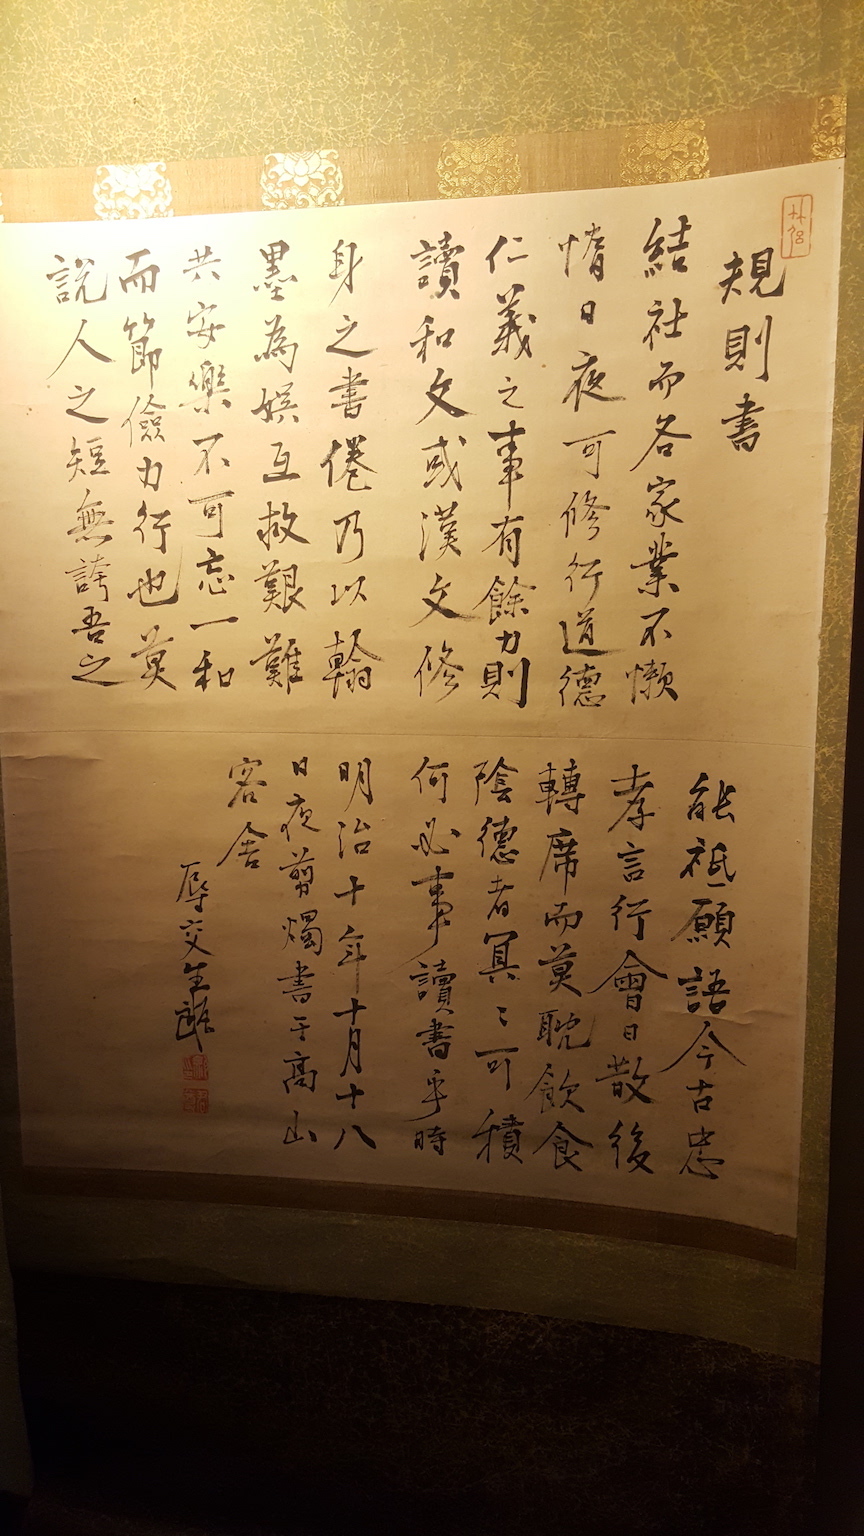 規則書
結社而各家業不懶
惰日夜可修行道德
仁義之事有餘力則
讀和文或漢文修
身之書倦乃以翰
墨為娯互救艱難
共安樂不可忘一和
而節儉力行也莫
說人之短無誇吾之
能祗願語今古忠
孝言行會日散後
轉席而莫耽飲食
陰德者冥〻可積
何必事讀書乎時
明治十年十月十八
日夜剪燭書于高山
客舍
辱交生